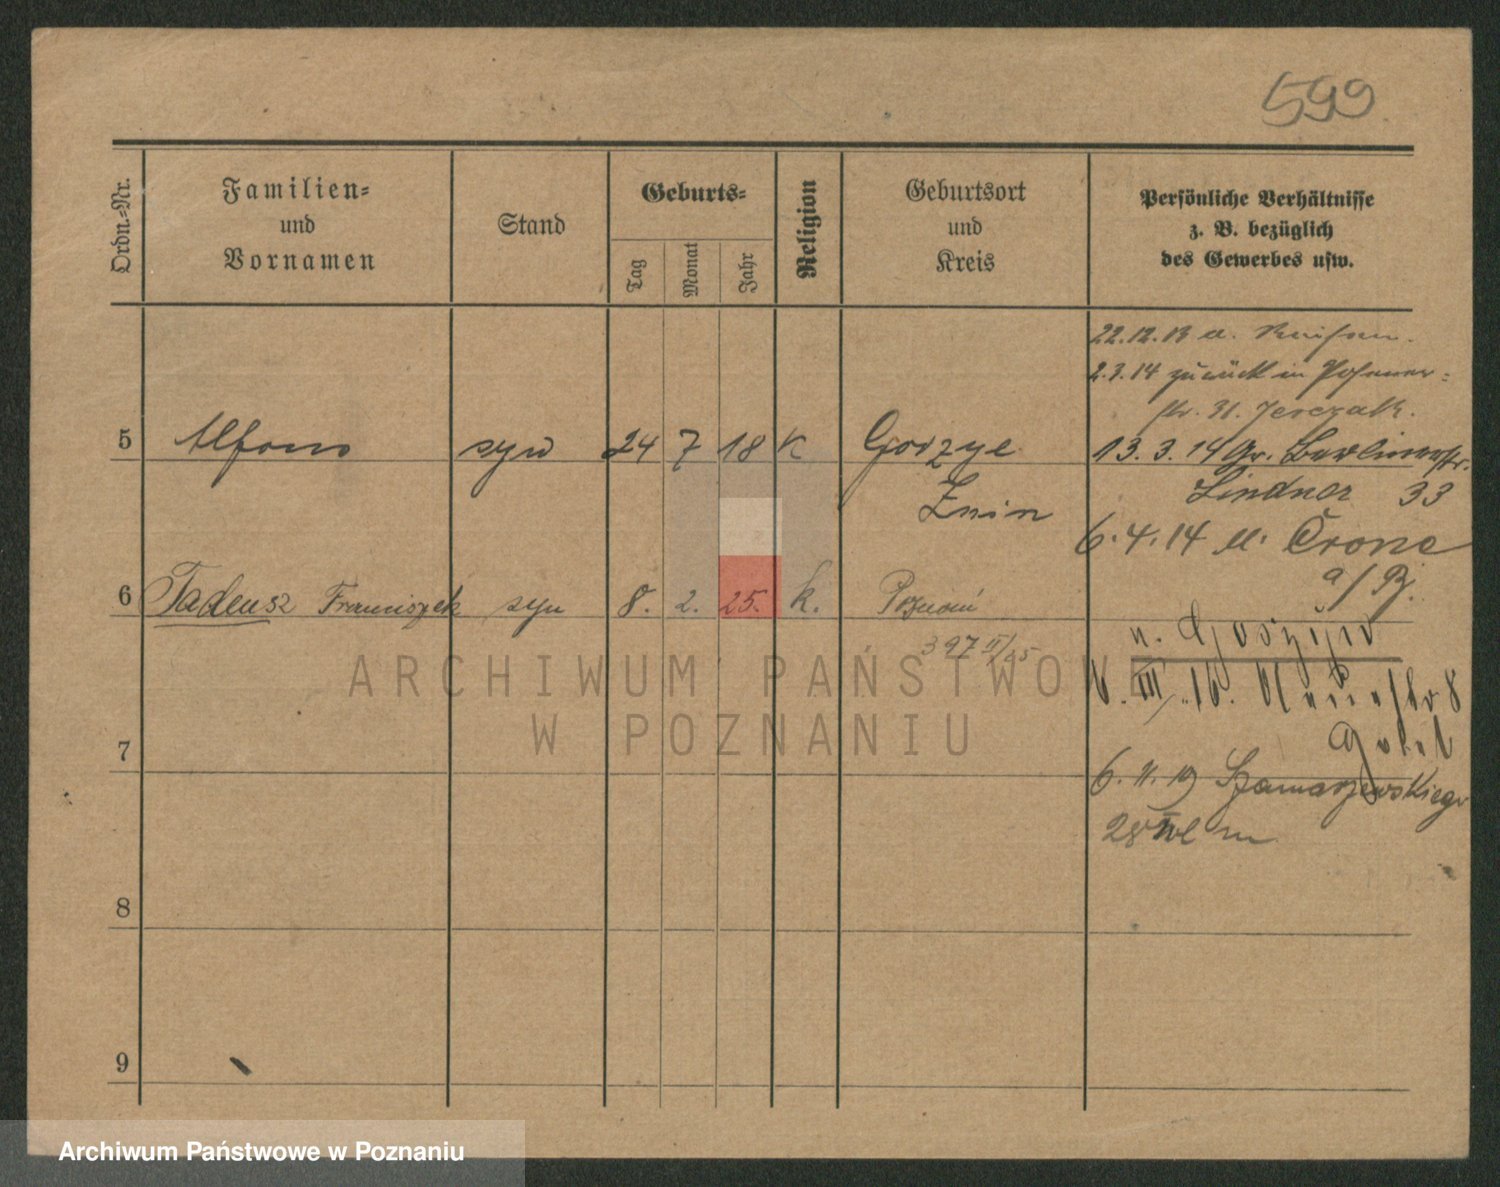 599
Ordn.-Nr.
Familien-
und
Vornamen
Stand
Geburts-
Tag
Monat
Jahr
Religion
Geburtsort
und
Kreis
Persönliche Verhältnisse
z. B. bezüglich
des Gewerbes usw.
22.12.13 a. Reisen.
2.3.14 zurück in Posener-
str. 31. Jerczak.
5 Alfons syn 24 7 18 K Gorzyce
Znin
13.3.14 Gr. Berlinerstr.
Lindner 33
6.4.14 u. Crone
a/Br.
6 Tadeusz Franciszek syn 8. 2. 25. k. Poznań
397 II/25
n.
III. 16.
7
6. 11. 19 Szamarzewskiego
28
8
9
ARCHIWUM PAŃSTWOWE
W POZNANIU
Archiwum Państwowe w Poznaniu